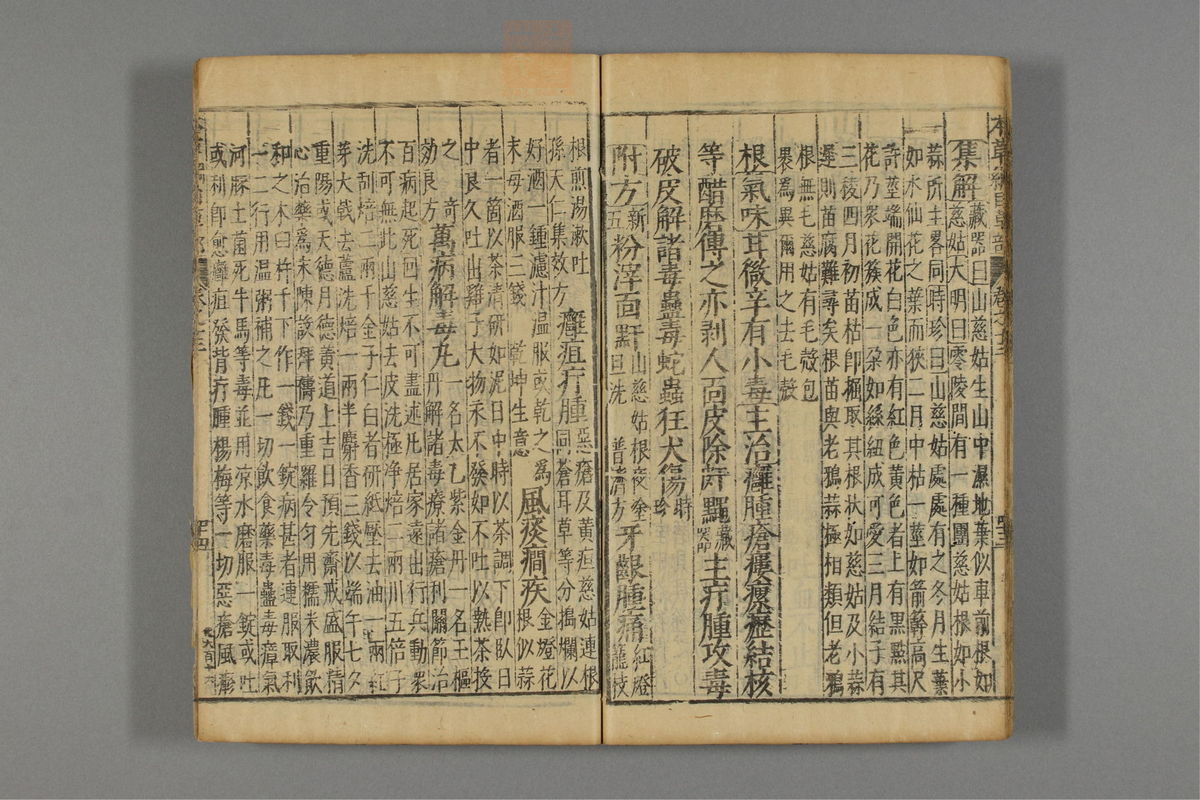 集解藏器曰山慈姑生山中濕地葉似車前根如
慈姑大明曰零陵間有一種團慈姑根如小
蒜所主畧同時珍曰山慈姑處處有之冬月生葉
如水仙花之葉而狹二月中枯一莖如箭簳高尺
許莖端開花白色亦有紅色黄色者上有黑㸃其
花乃衆花簇成一朶如絲紐成可愛三月結子有
三稜四月初苗枯卽掘取其根狀如慈姑及小蒜
遲則苗腐難尋矣根苗與老鴉蒜極相類但老鴉
根無毛慈姑有毛殻包
褁爲異爾用之去毛殻
根氣味甘微辛有小毒主治癰腫瘡瘻瘰癧結核
等醋磨傅之亦剥人面皮除皯䵳藏器主疔腫攻毒
破皮解諸毒蠱毒蛇蟲狂犬傷時珍
附方新五粉滓面皯山慈姑根夜塗旦洗 普濟方牙齦腫痛紅燈籠枝
根煎湯漱吐
孫天仁集效方癰疽疔腫惡瘡及黄疸慈姑連根同蒼耳草等分搗爛以
好酒一鍾濾汁温服或乾之爲
末每酒服三錢 乾坤生意風痰癇疾金燈花根似蒜
者一箇以茶清研如泥日中時以茶調下卽臥日
中良久吐出雞子大物永不發如不吐以熱茶投
之 奇
効良方萬病解毒丸一名太乙紫金丹一名玉樞丹解諸毒療諸瘡利關節治
百病起死回生不可盡述凡居家遠出行兵動衆
不可無此山慈姑去皮洗極净焙二兩川五倍子
洗刮焙二兩千金子仁白者研紙壓去油一兩紅
芽大戟去蘆洗焙一兩半麝香三錢以端午七夕
重陽或天德月德黄道上吉日預先齋戒盛服精
心治藥爲末陳設拜禱乃重羅令匀用糯米濃飲
和之木臼杵千下作一錢一錠病甚者連服取利
一二行用温粥補之凡一切飲食藥毒蠱毒瘴氣
河豚土菌死牛馬等毒並用凉水磨服一錠或吐
或利卽愈癰疽發背疔腫楊梅等一切惡瘡風疹